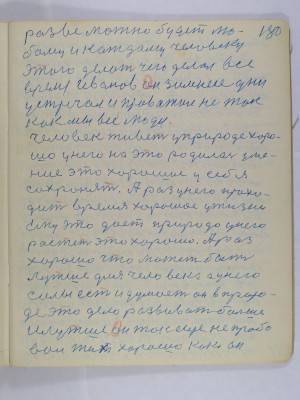 разве можно будет лю- 130
бому и каждому человеку
этого делат чего делал все
время Иванов он зимнее дни
устречал и проважал не так
как мы все люди.
Человек живет у природе хоро-
шо у него на это родилас уме-
ние это хорошое у себя
сохронят. А раз у него прохо-
дит время хорошое у жизни
ему это дает природа у него
растет это хорошо. А раз
хорошо что может быть
лутше для человека а у него
силы ест и думает он в природ-
де это дело развиват больше
и лутше он так еще не пробо
вал жит хорошо как он